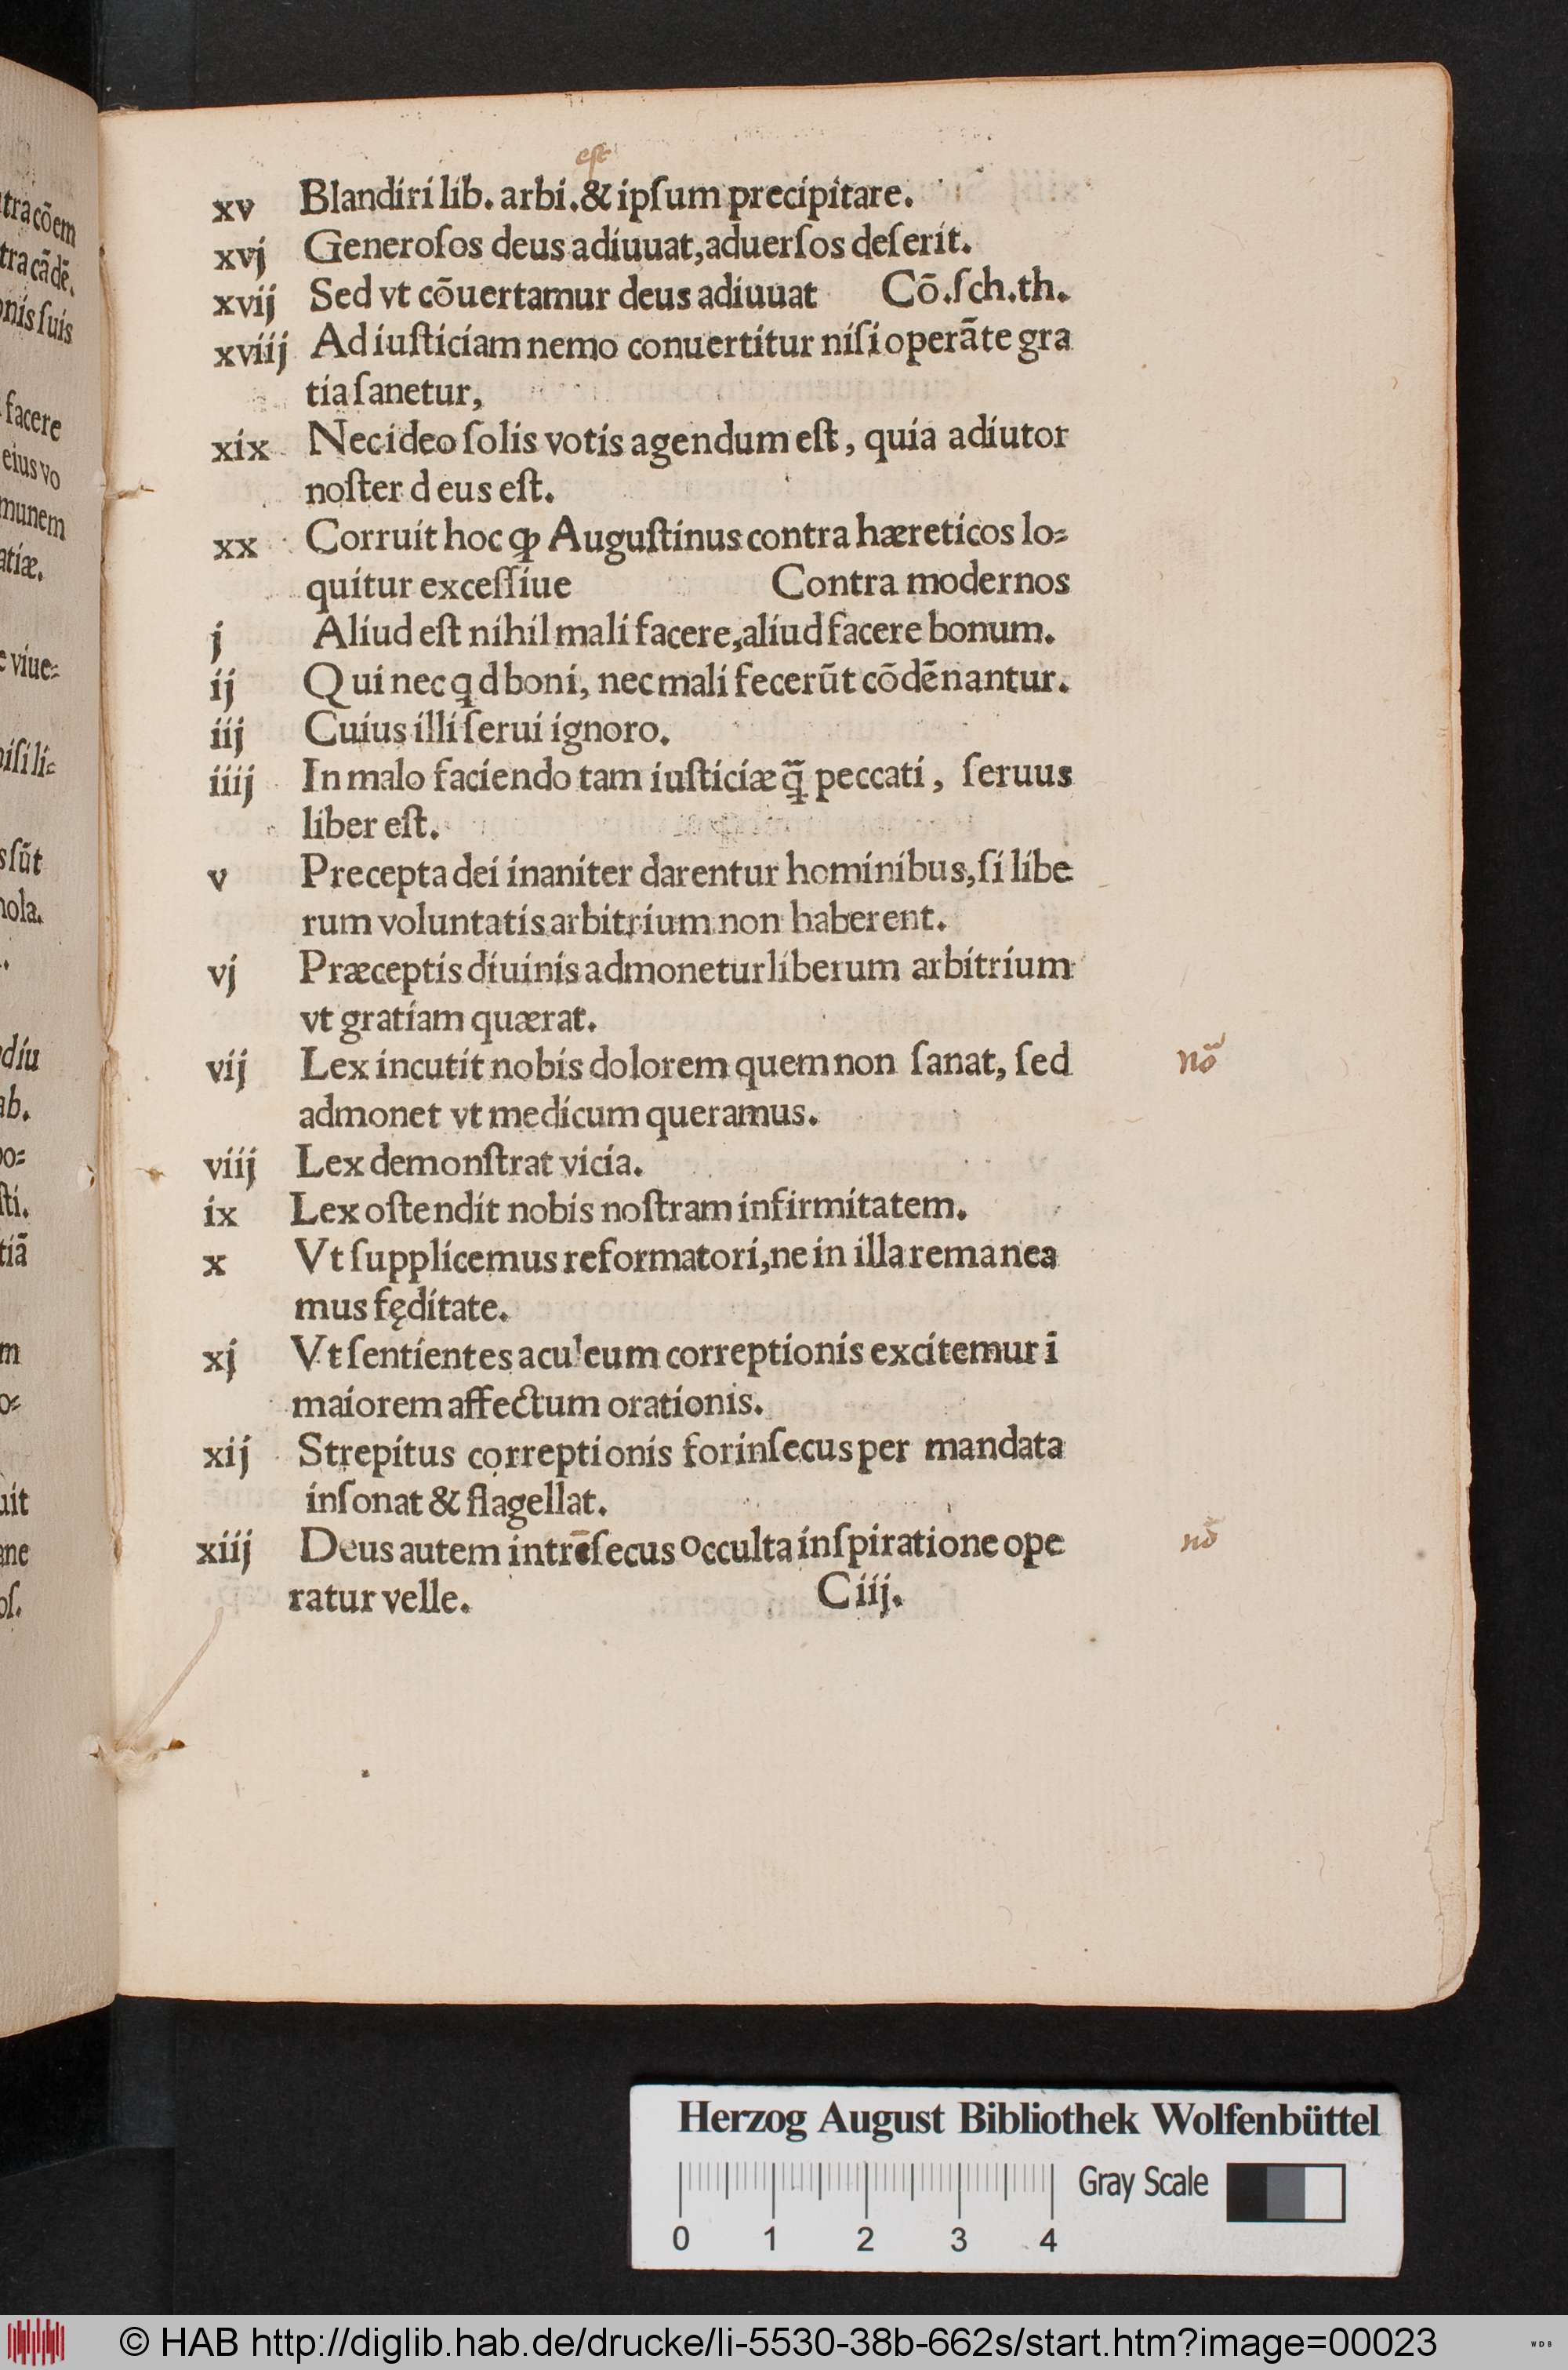 est
xv Blandiri lib. arbi. & ipſum precipitare.
xvj Generoſos deus adiuuat, aduerſos deſerit.
xvij Sed vt cōuertamur deus adiuuat Cō.ſch.th.
xviij Ad iuſticiam nemo conuertitur niſi operāte gra
tia ſanetur,
xix Nec ideo ſolis votis agendum eſt, quia adiutor
noſter deus eſt.
xx Corruit hoc ꝙ Auguſtinus contra hæreticos lo⸗
quitur exceſſiue Contra modernos
j Aliud eſt nihil mali facere, aliud facere bonum.
ij Qui nec qd boni, nec mali fecerūt cōdēnantur.
iij Cuius illi ſerui ignoro.
iiij In malo faciendo tam iuſticiæ q̄ peccati, ſeruus
liber eſt.
v Precepta dei inaniter darentur hominibus, ſi libe
rum voluntatis arbitrium non haberent.
vj Præceptis diuinis admonetur liberum arbitrium
vt gratiam quærat.
vij Lex incutit nobis dolorem quem non ſanat, ſed nō
admonet vt medicum queramus.
viij Lex demonſtrat vicia.
ix Lex oſtendit nobis noſtram infirmitatem.
x Vt ſupplicemus reformatori, ne in illa remanea
mus fęditate.
xj Vt ſentientes aculeum correptionis excitemur ī
maiorem affectum orationis.
xij Strepitus correptionis forinſecus per mandata
inſonat & flagellat.
xiij Deus autem intrēſecus occulta inſpiratione ope nō
ratur velle. C iij.
tra cōem
tra cādē.
onis ſuis
facere
eius vo
munem
atiæ.
e viue⸗
niſi li⸗
s ſūt
hola.
diu
ab.
oo⸗
ſti.
tiā
m
o⸗
uit
ane
oſ.
Herzog August Bibliothek Wolfenbüttel
Gray Scale
0 1 2 3 4
© HAB http://diglib.hab.de/drucke/li-5530-38b-662s/start.htm?image=00023
WDB